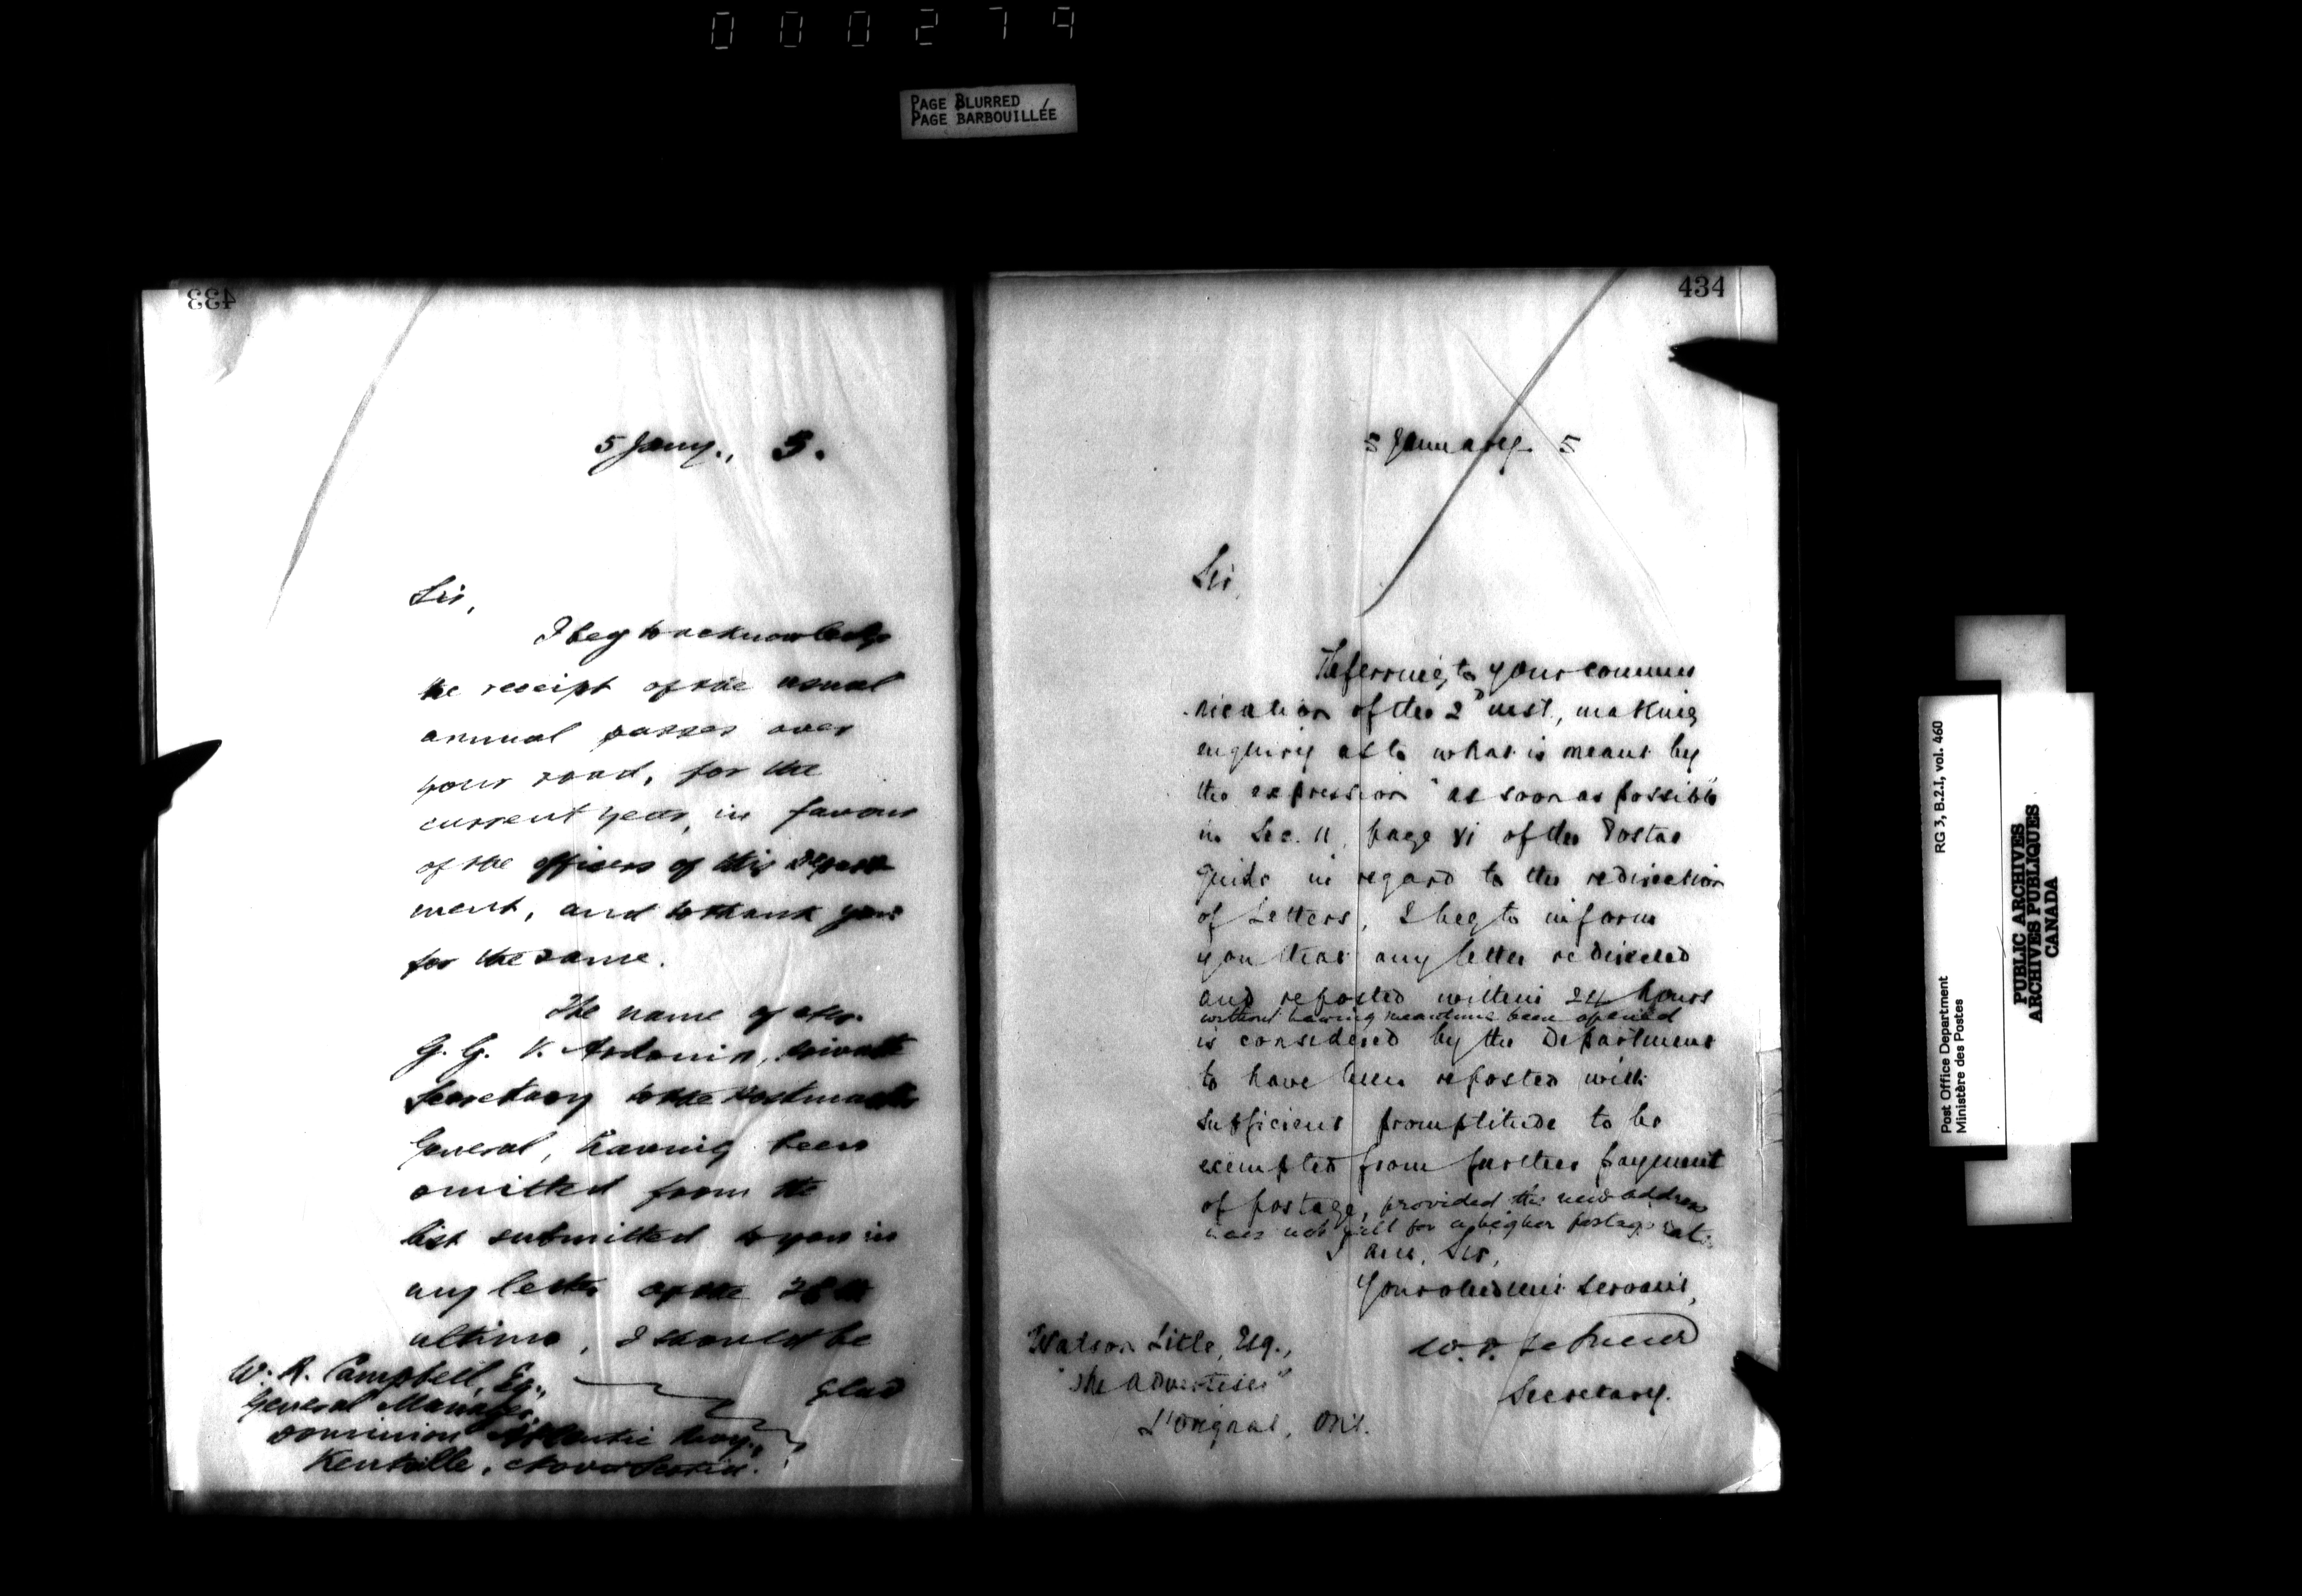 000279
PAGE BLURRED
PAGE BARBOUILLÉE
433
5 Jany., 5.
Sir,
I beg to acknowledge
the receipt of the usual
annual passes over
your road, for the
current year, in favour
of the officers of this Depart
ment, and to thank you
for the same.
The name of Mr.
G. G. V. Ardouin, private
Secretary to the Postmaster
General, having been
omitted from the
list submitted to you in
my letter of the
ultimo, I should be
glad
W. R. Campbell, Esq.,
General Manager,
Dominion Atlantic Rwy.,
Kentville, Nova Scotia.
434
5 January 5
Sir,
Referring to your commu
-nication of the 2d inst., making
enquiry as to what is meant by
the expression "as soon as possible"
in Sec. 11, page xi of the Postal
Guide in regard to the redirection
of Letters, I beg to inform
you that any letter redirected
and reposted within 24 hours
without having meantime been opened
is considered by the Department
to have been reposted with
sufficient promptitude to be
exempted from further payment
of postage, provided the new address
does not call for a higher postage rate.
I am, Sir,
Your obedient Servant,
Watson Little, Esq.,
"The Advertiser"
L'Orignal, Ont.
Secretary.
Post Office Department
Ministère des Postes
RG 3, B.2.I, vol. 460
PUBLIC ARCHIVES
ARCHIVES PUBLIQUES
CANADA